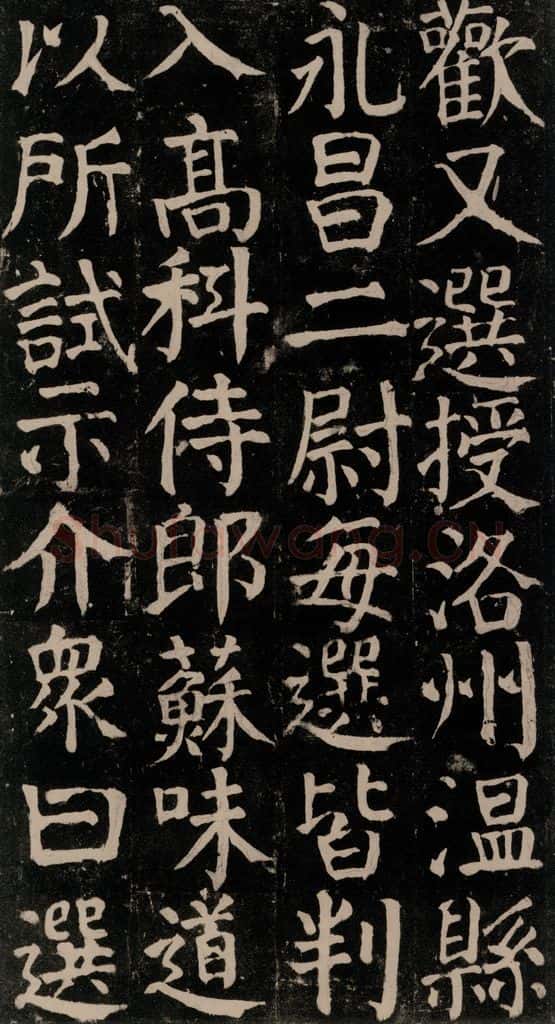 歡又選授洛州温縣
永昌二尉每選皆判
入髙科侍郎蘇味道
以所試示介衆曰選
Shufawang.cn